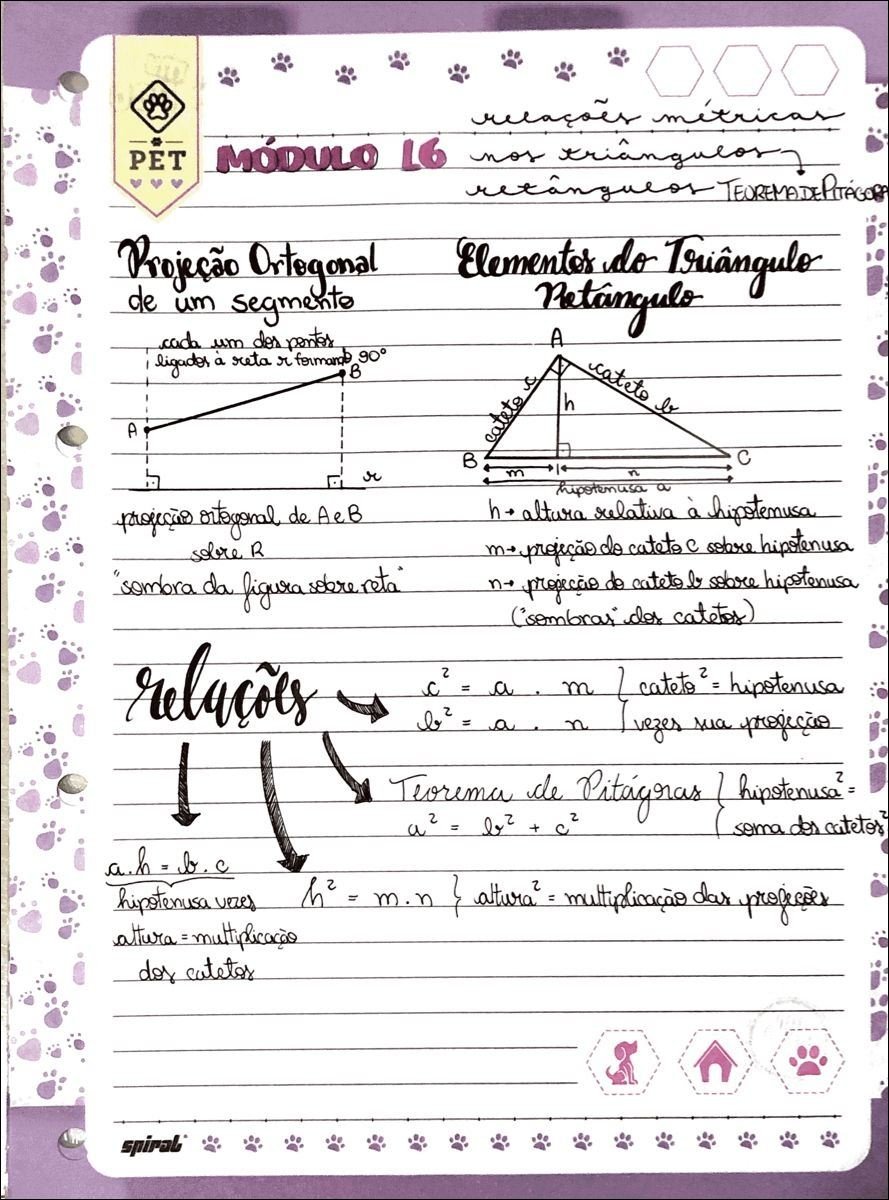 PET
MÓDULO 16
relações métricas
nos triângulos
retângulos TEOREMA DE PITÁGORA
Projeção Ortogonal
de um segmento
cada um dos pontos
ligados à reta r formando 90°
B
A
r
projeção ortogonal de A e B
sobre R
"sombra da figura sobre reta"
Elementos do Triângulo
Retângulo
A
cateto c
h
cateto b
B
C
m
n
hipotenusa a
h → altura relativa à hipotenusa
m → projeção do cateto c sobre hipotenusa
n → projeção do cateto b sobre hipotenusa
("sombras" dos catetos)
relações
c² = a . m } cateto² = hipotenusa
b² = a . n } vezes sua projeção
Teorema de Pitágoras } hipotenusa² =
a² = b² + c² soma dos catetos²
a.h = b.c
hipotenusa vezes
altura = multiplicação
dos catetos
h² = m.n } altura² = multiplicação das projeções
spiral